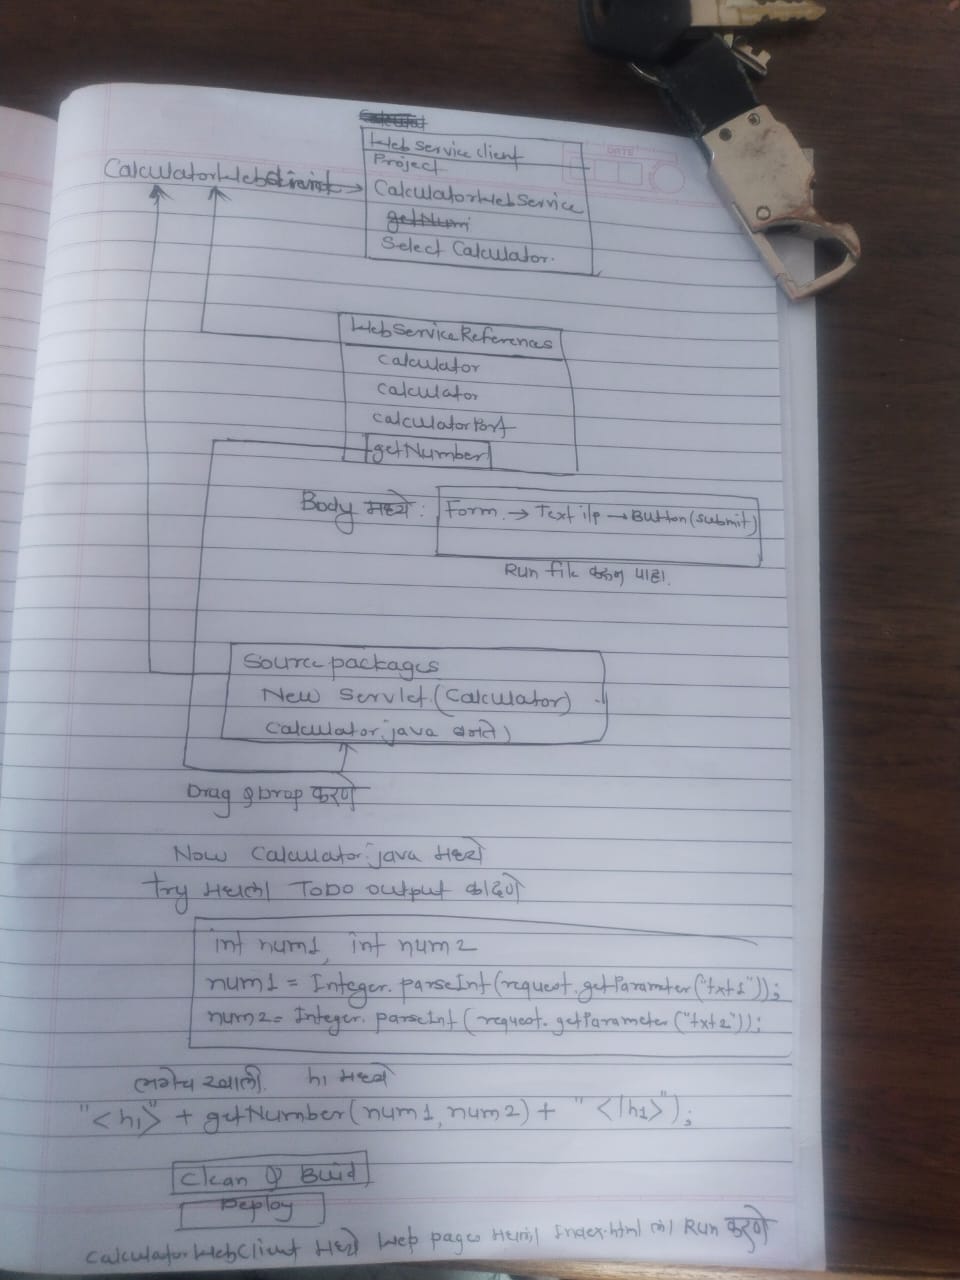 DATE
Web Service client
Project
CalculatorWebClient
CalculatorWebService
getNum
Select Calculator.
WebServiceReferences
calculator
calculator
calculatorPort
getNumber
Body मध्ये : Form → Text i/p → Button (submit)
Run file करून पाहा.
Source packages
New Servlet (Calculator)
Calculator.java बनते)
Drag & Drop करणे
Now Calculator.java मध्ये
Try मधला TODO output काढणे
int num1, int num2
num1 = Integer.parseInt(request.getParamter("txt1"));
num2 = Integer.parseInt(request.getParameter("txt2"));
लगेच खाली h1 मध्ये
"<h1>" + getNumber(num1, num2) + "</h1>");
Clean & Buid
Deploy
CalculatorWebClient मध्ये Web pages मधला Index.html ला Run करणे